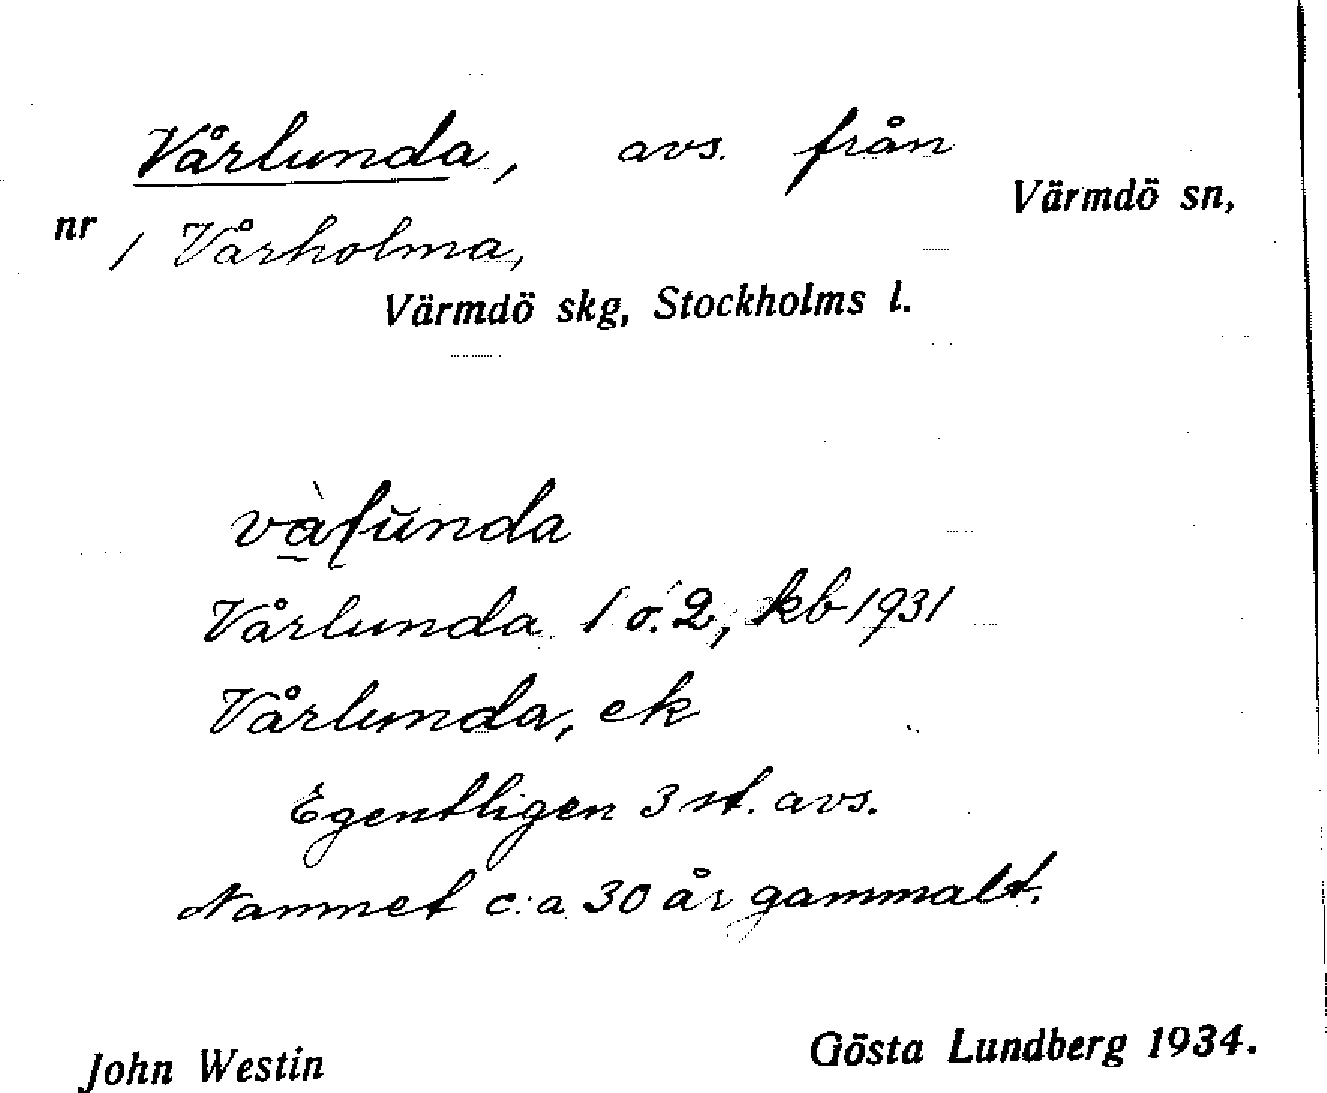 Vårlunda, avs. från
Värmdö sn,
nr 1 Vårholma,
Värmdö skg, Stockholms l.
Vårlunda 1 o. 2, kb 1931
Vårlunda, ek
Egentligen 3 st. avs.
Namnet c:a 30 år gammalt.
John Westin
Gösta Lundberg 1934.